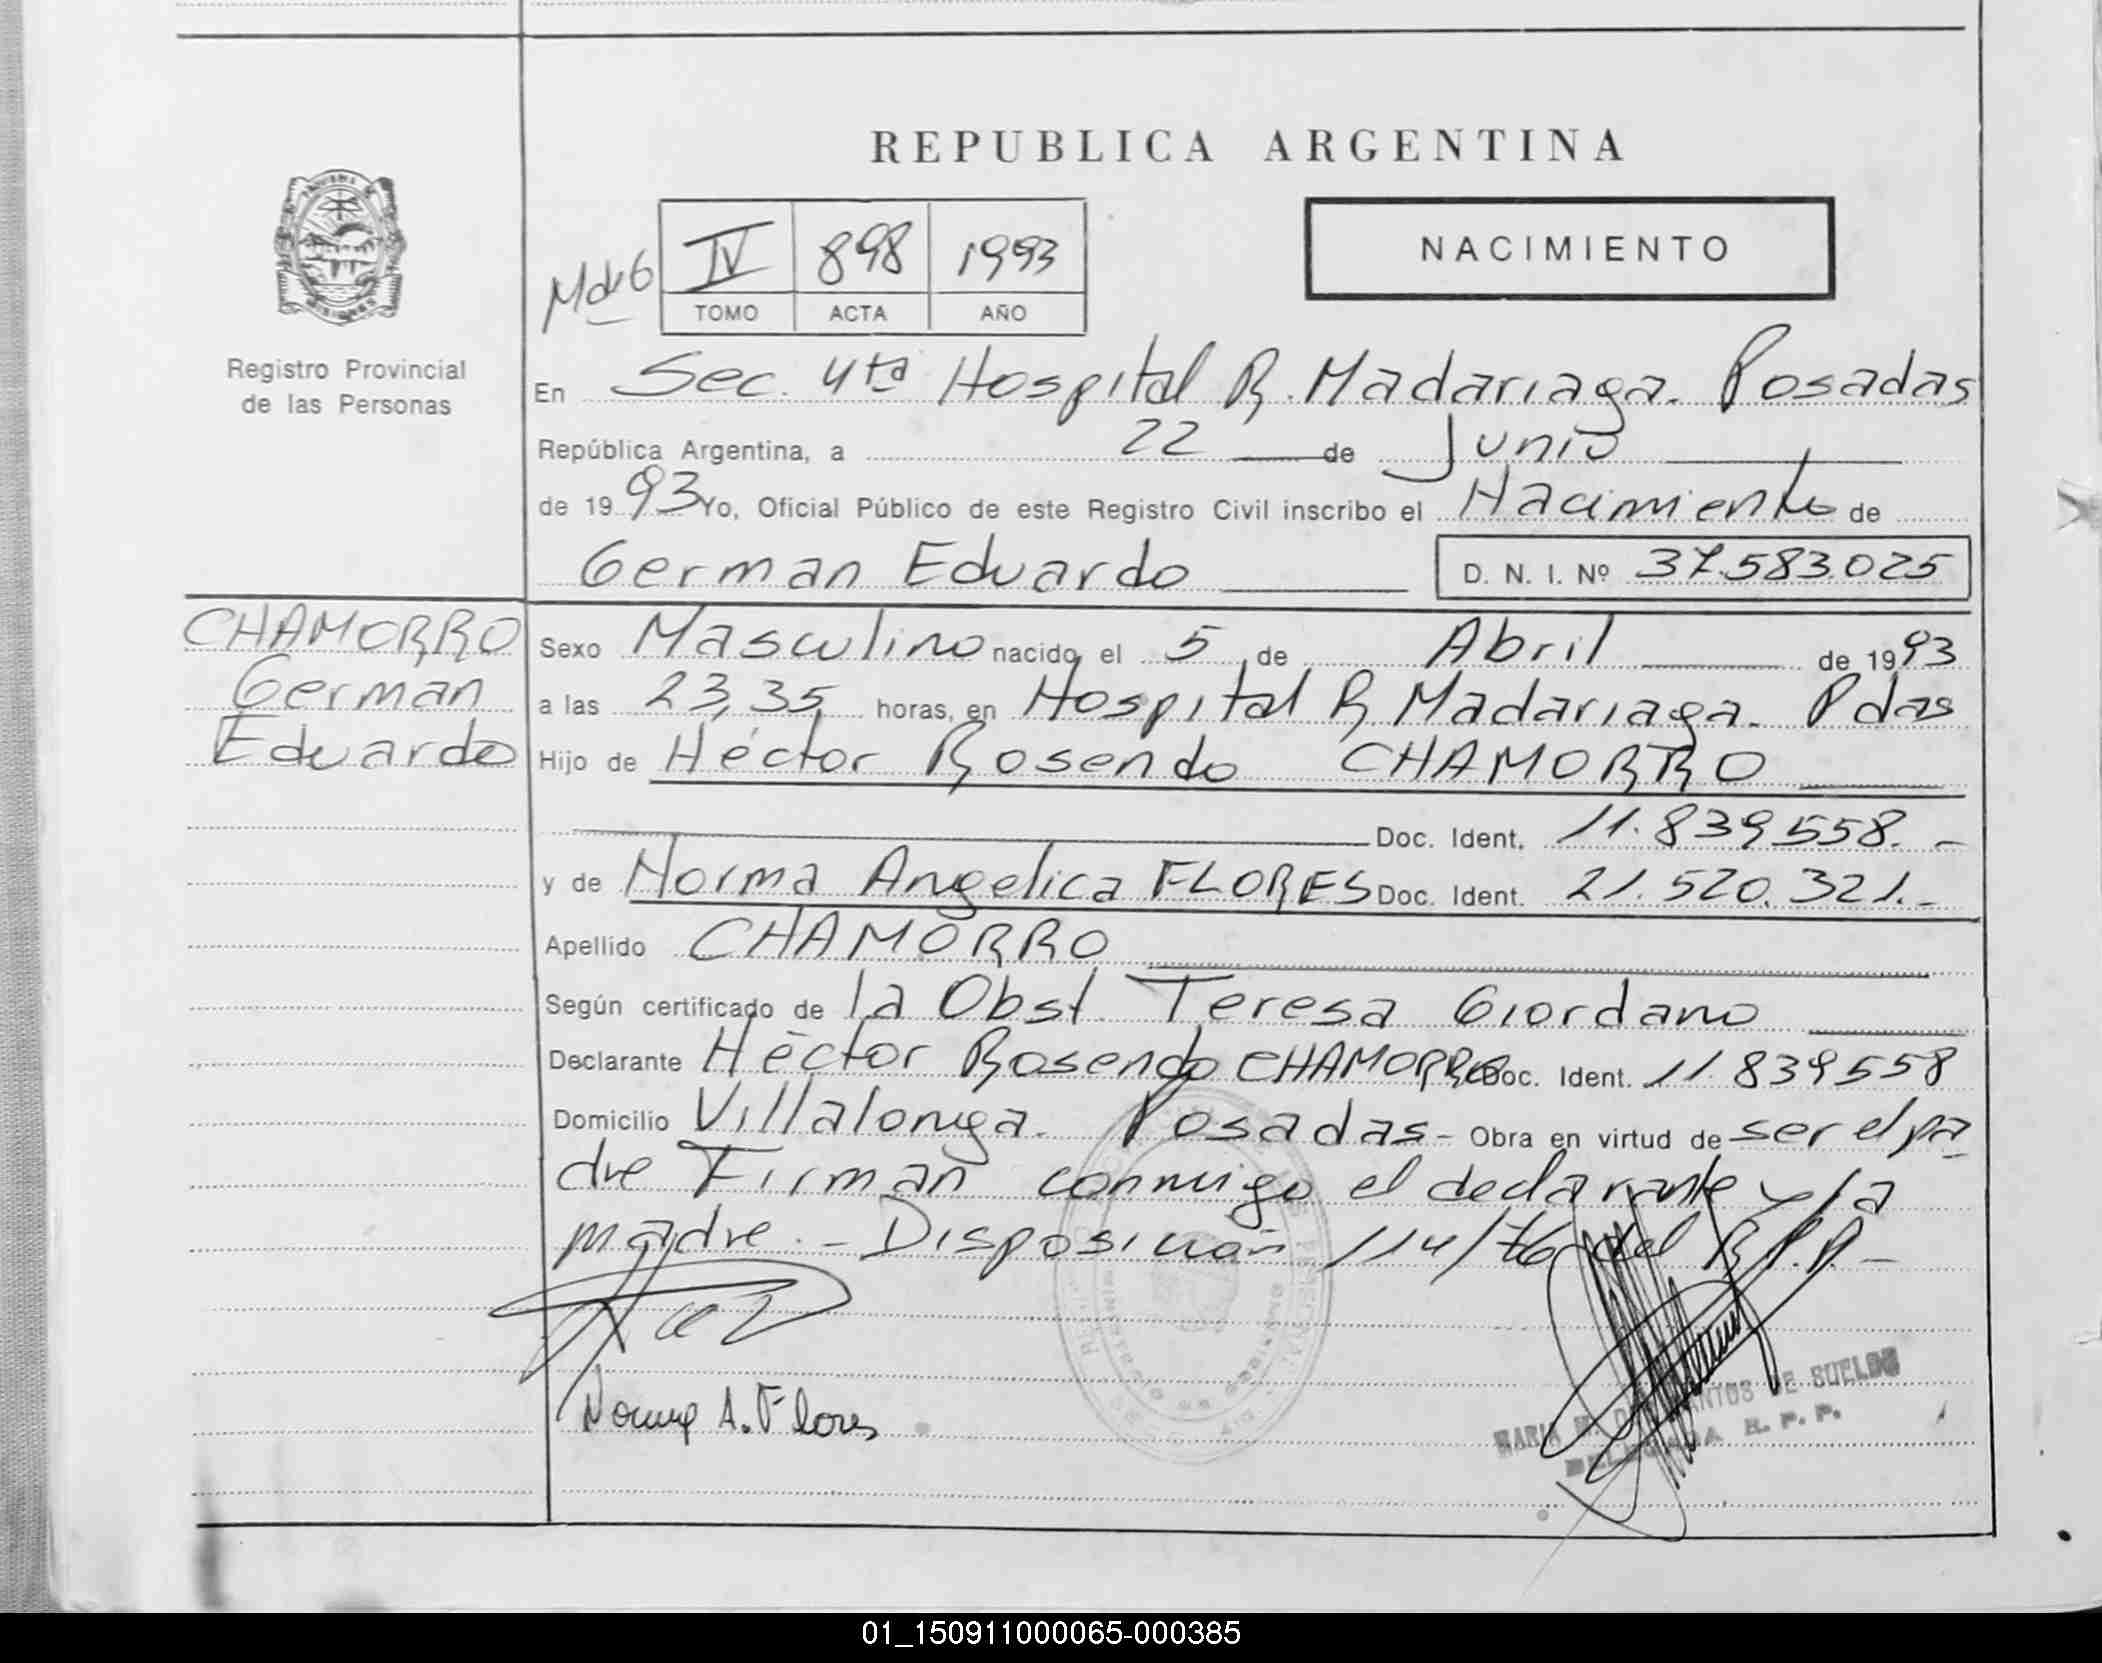 REPUBLICA ARGENTINA
NACIMIENTO
IV 898 1993
TOMO ACTA AÑO
Registro Provincial
de las Personas
En Sec. 4ta Hospital R. Madariaga. Posadas
República Argentina, a 22 de Junio
de 1993 Yo, Oficial Público de este Registro Civil inscribo el Nacimiento de
German Eduardo D. N. I. Nº 37.583.025
CHAMORRO
German
Eduardo
Sexo Masculino nacido el 5 de Abril de 1993
a las 23,35 horas, en Hospital R. Madariaga. Pdas
Hijo de Héctor Rosendo CHAMORRO
Doc. Ident. 11.839.558.-
y de Norma Angelica FLORES Doc. Ident. 21.520.321.-
Apellido CHAMORRO
Según certificado de la Obst. Teresa Giordano
Declarante Héctor Rosendo CHAMORRO Doc. Ident. 11.839558
Domicilio Villalonga. Posadas- Obra en virtud de ser el pa
dre Firman conmigo el declarante y la
madre.- Disposición 114/76 del R.P.P.-
Norma A. Flores
MARIA M. DE SUELDO
DELEGADA R. P. P.
01_150911000065-000385